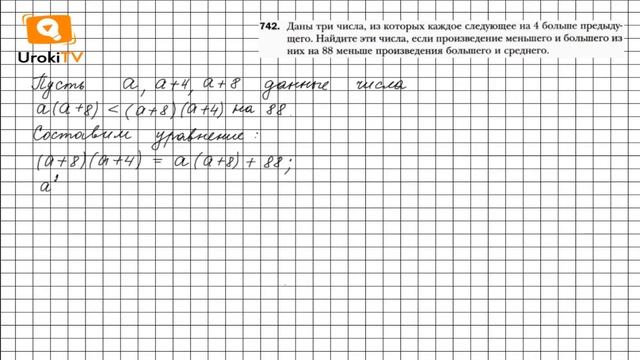 UrokiTV
742. Даны три числа, из которых каждое следующее на 4 больше предыду-
щего. Найдите эти числа, если произведение меньшего и большего из
них на 88 меньше произведения большего и среднего.
Пусть a, a+4, a+8 данные числа
a(a+8) < (a+8)(a+4) на 88.
Составим уравнение:
(a+8)(a+4) = a(a+8)+88;
a